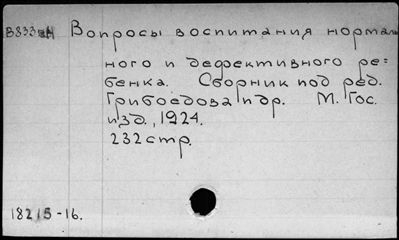 В833вн Вопросы воспитания нормаль
ного и дефективного ре=
бенка. Сборник под ред.
Грибоедова и др. М. Гос.
изд., 1924.
232 стр.
18215-16.